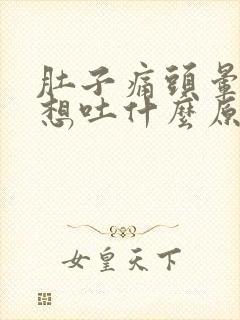 肚子痛頭暈
想吐什麼原
女皇天下